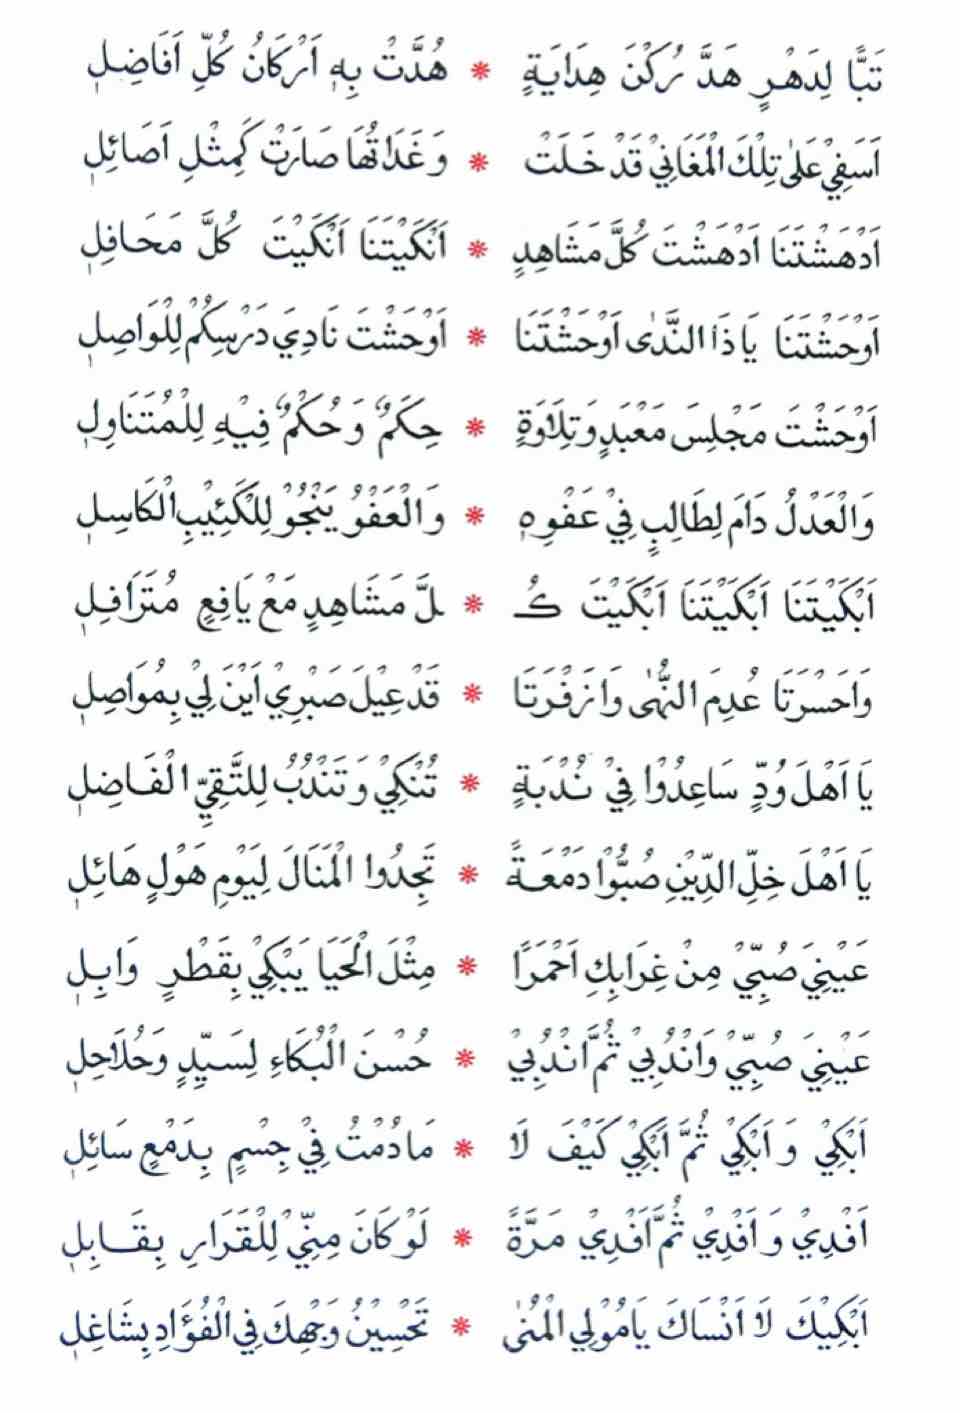 تَبًّا لِدَهْرٍ هَدَّ رُكْنَ هِدَايَةٍ * هُدَّتْ بِهِ اَرْكَانُ كُلِّ اَفَاضِلِ
اَسَفِيْ عَلٰى تِلْكَ الْمَغَانِيْ قَدْ خَلَتْ * وَغَدَاتُهَا صَارَتْ كَمِثْلِ اَصَائِلِ
اَدْهَشْتَنَا اَدْهَشْتَ كُلَّ مَشَاهِدٍ * اَنْكَيْتَنَا اَنْكَيْتَ كُلَّ مَحَافِلِ
اَوْحَشْتَنَا يَا ذَا النَّدٰى اَوْحَشْتَنَا * اَوْحَشْتَ نَادِيَ دَرْسِكُمْ لِلْوَاصِلِ
اَوْحَشْتَ مَجْلِسَ مَعْبَدٍ وَتِلَاوَةٍ * حِكَمٌ وَحُكْمٌ فِيْهِ لِلْمُتَنَاوِلِ
وَالْعَدْلُ دَامَ لِطَالِبٍ فِيْ عَفْوِهِ * وَالْعَفْوُ يَنْجُوْ لِلْكَئِيْبِ الْكَاسِلِ
اَبْكَيْتَنَا اَبْكَيْتَنَا اَبْكَيْتَ كُـ * ـلَّ مَشَاهِدٍ مَعْ يَافِعٍ مُتَرَافِلِ
وَاحَسْرَتَا عُدِمَ النُّهٰى وَا زَفْرَتَا * قَدْ عِيْلَ صَبْرِيْ اَيْنَ لِيْ بِمُوَاصِلِ
يَا اَهْلَ وُدٍّ سَاعِدُوْا فِيْ نُدْبَةٍ * تُنْكِيْ وَتَنْدُبُ لِلتَّقِيِّ الْفَاضِلِ
يَا اَهْلَ خِلِّ الدِّيْنِ صُبُّوْا دَمْعَةً * تَجِدُوا الْمَنَالَ لِيَوْمِ هَوْلٍ هَائِلِ
عَيْنِيَ صُبِّيْ مِنْ غِرَابِكِ اَحْمَرًا * مِثْلَ الْحَيَا يَبْكِيْ بِقَطْرٍ وَابِلِ
عَيْنِيَ صُبِّيْ وَانْدُبِيْ ثُمَّ انْدُبِيْ * حُسْنَ الْبُكَاءِ لِسَيِّدٍ وَحُلَاحِلِ
اَبْكِيْ وَ اَبْكِيْ ثُمَّ اَبْكِيْ كَيْفَ لَا * مَا دُمْتُ فِيْ جِسْمٍ بِدَمْعٍ سَائِلِ
اَفْدِيْ وَ اَفْدِيْ ثُمَّ اَفْدِيْ مَرَّةً * لَوْ كَانَ مِنِّيْ لِلْقَرَارِ بِقَابِلِ
اَبْكِيْكَ لَا اَنْسَاكَ يَا مُوْلِي الْمُنٰى * تَحْسِيْنُ وَجْهِكَ فِي الْفُؤَادِ بِشَاغِلِ